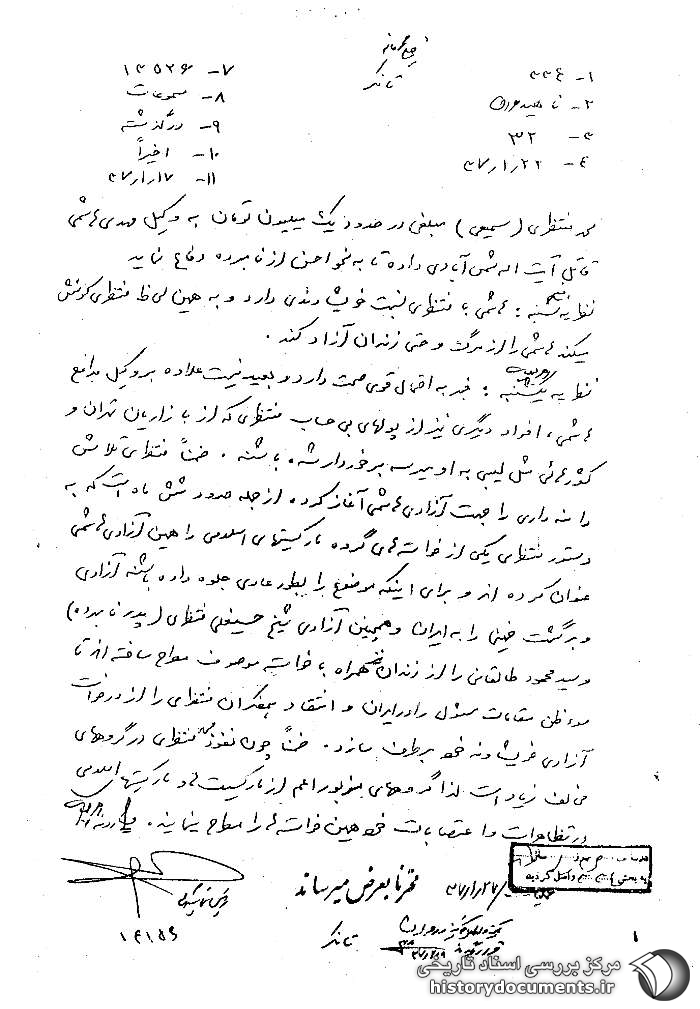 ۱- ۳۳۶
۲-
۳- ۳۲
۴- ۳۷/۱/۲۲
۷- ۱۳۵۲۶
۸- مسموعات
۹- در گذشته
۱۰- اخیراً
۱۱- ۳۷/۱/۱۷
محمد منتظری (سمیعی) مبلغی در حدود یک میلیون تومان به وکیل مهدی هاشمی
قاتل آیت اله شمس آبادی داده تا به نحو احسن از نامبرده دفاع نماید
نظریه شنبه : هاشمی با منتظری نسبت خویشاوندی دارد و به همین لحاظ منتظری کوشش
میکند هاشمی را از مرگ و حتی زندان آزاد کند .
نظریه یکشنبه : خبر به احتمال قوی صحت دارد و بعید نیست علاوه بر وکیل مدافع
هاشمی ، افراد دیگری نیز از پولهای بی حساب منتظری که از بازاریان تهران و
کشورهائی مثل لیبی به او میرسد برخوردار شده باشند . ضمناً منتظری تلاش
دامنه داری را جهت آزادی هاشمی آغاز کرده از جمله حدود شش ماه است که به
دستور منتظری یکی از خواسته های گروه مارکسیتهای اسلامی را همین آزادی هاشمی
عنوان کرده اند و برای اینکه موضوع را بطور عادی جلوه داده باشند آزادی
و برگشت خمینی را به ایران و همچنین آزادی شیخ حسینعلی منتظری (پدر نامبرده)
و سید محمود طالقانی را از زندان همراه با خواسته موصوف مطرح ساخته اند تا
سوءظن مقامات مسئول را در ایران و انتقاد همفکران منتظری را از درخواست
آزادی خویشاوند خود برطرف سازد . ضمناً چون نفوذ منتظری در گروههای
مخالف زیاد است لذا گروههای مزبور اعم از مارکسیست ها و مارکیستهای اسلامی
در تظاهرات و اعتصابات خود همین خواسته ها را مطرح مینمایند .
محترماً بعرض میرساند
۳۷/۱/۲۷
۱
مرکز بررسی اسناد تاریخی
historydocuments.ir